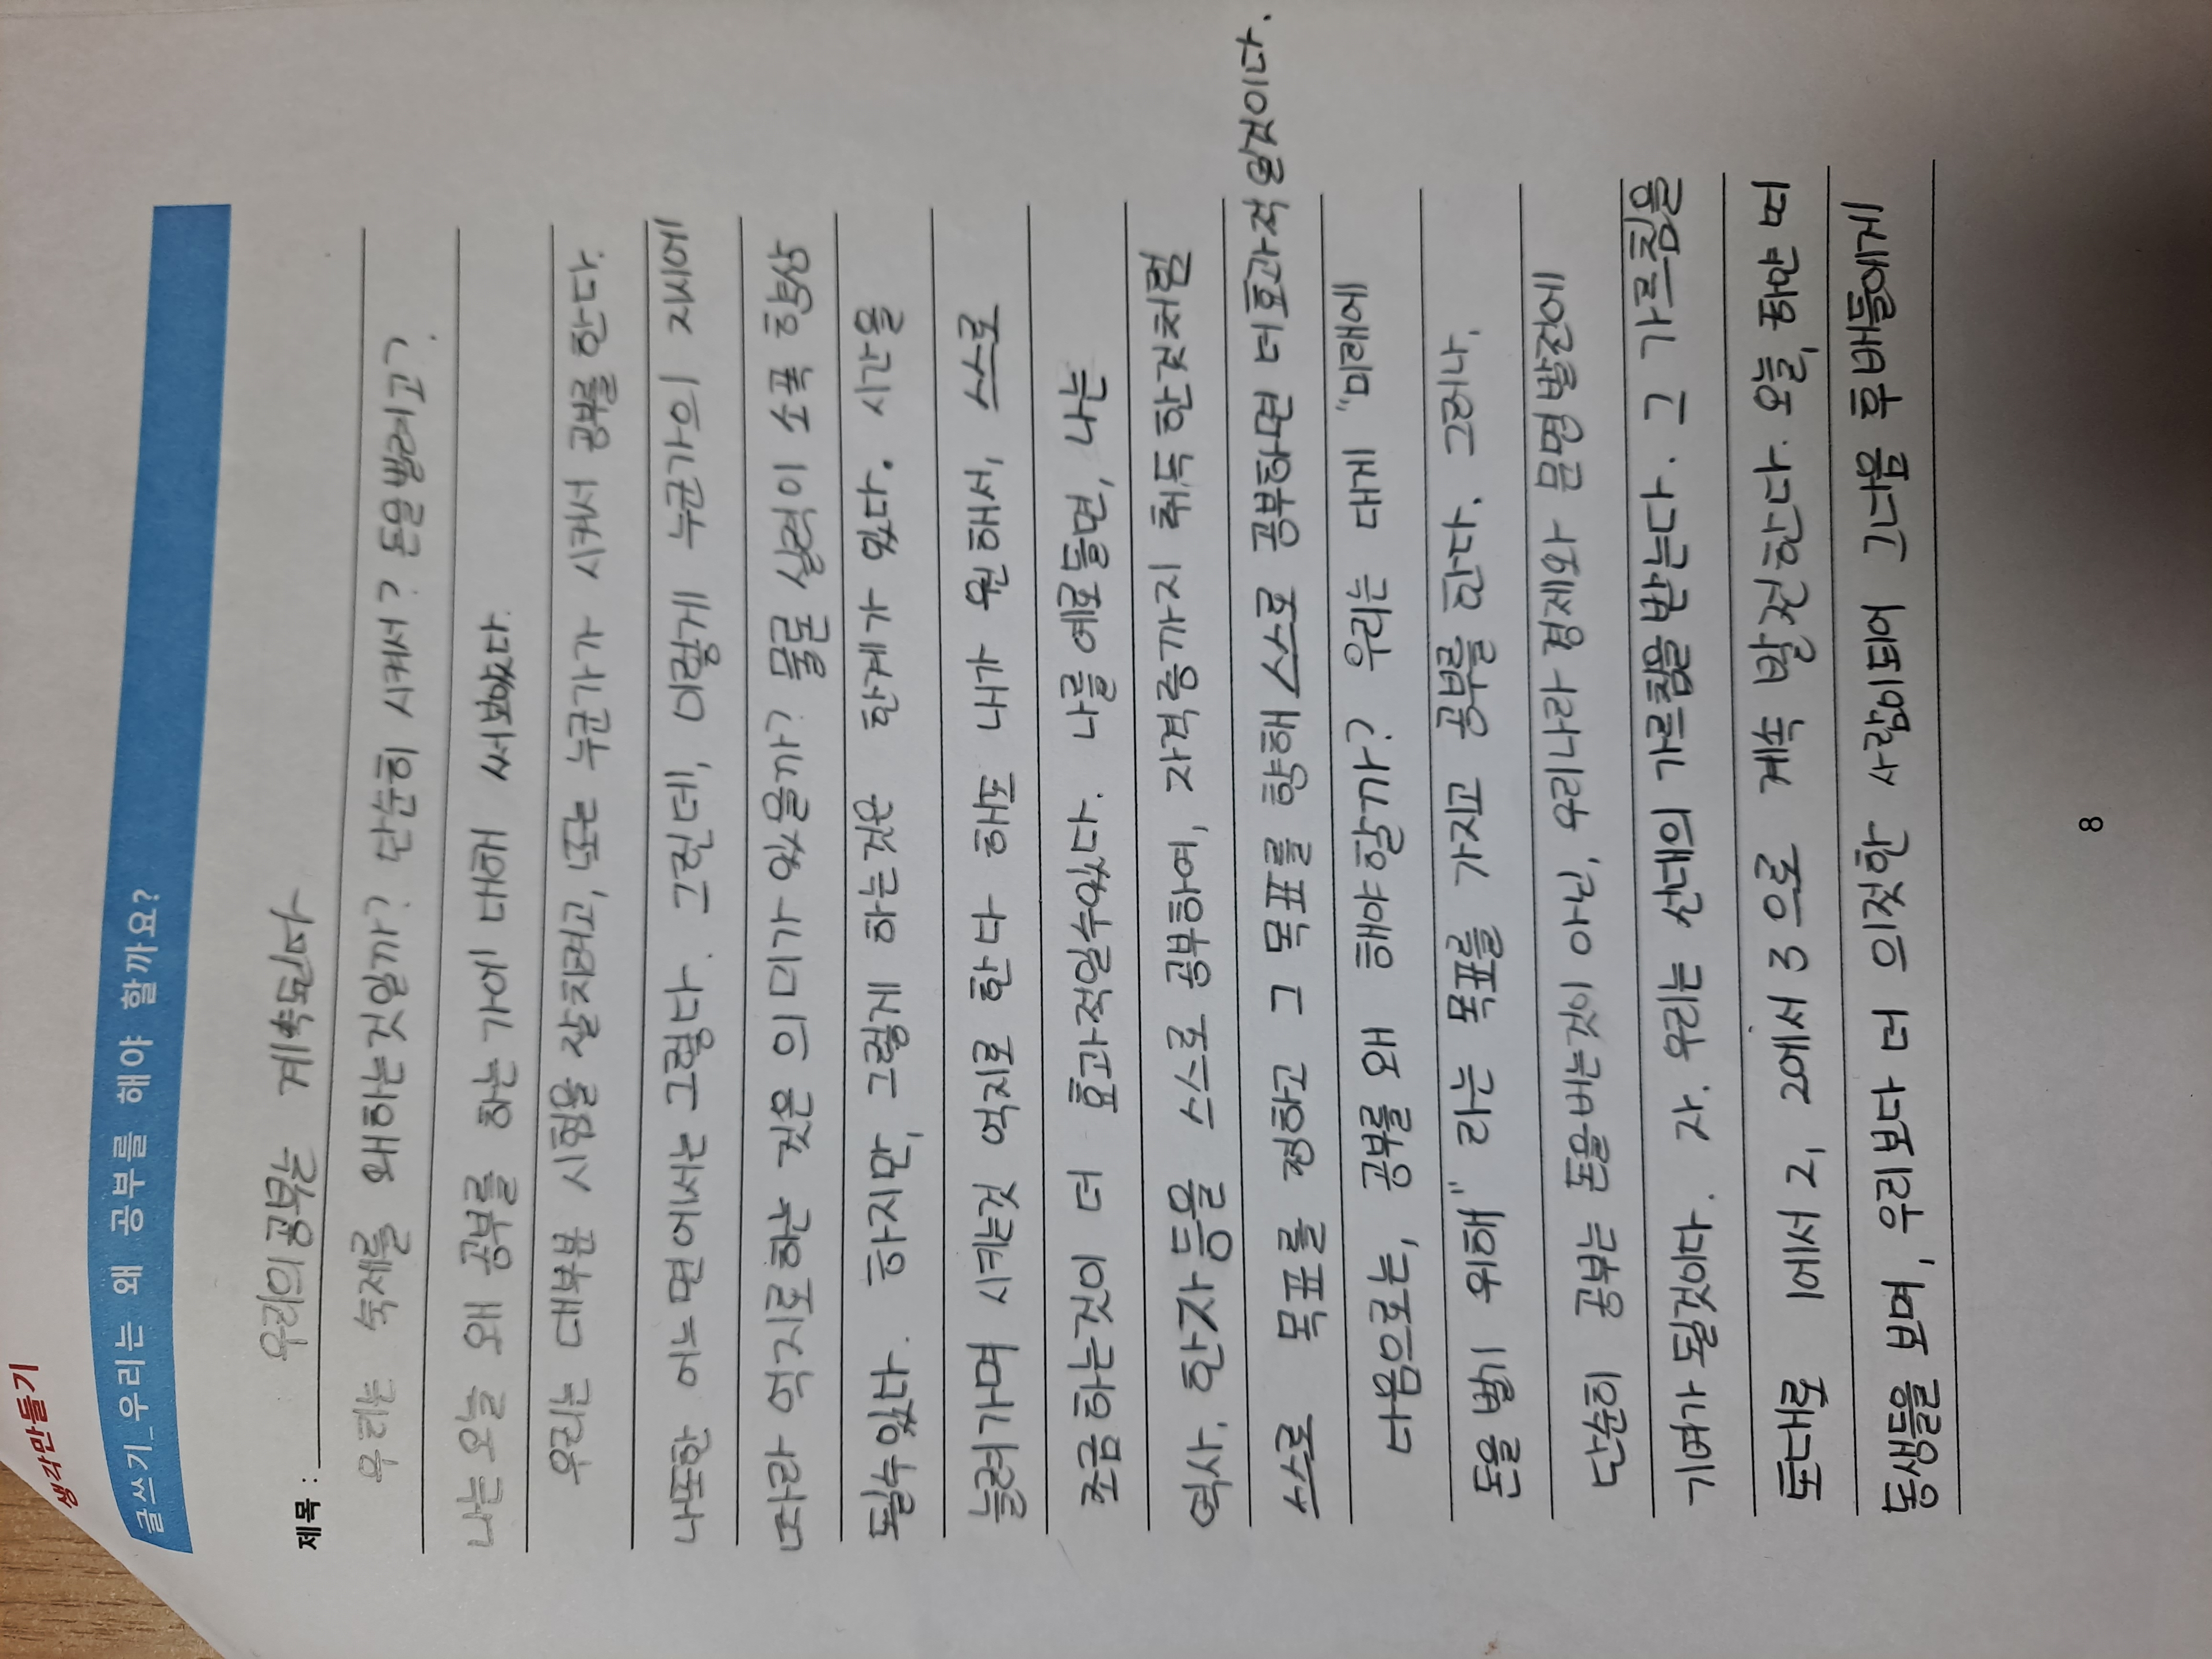 생각만들기
글쓰기_우리는 왜 공부를 해야 할까요?
제목: 우리의공부는 계속된다
우리는 숙제를 왜하는것일까? 단순히 시켜서? 돈을벌려고?
나는 오늘 왜 공부를 하는 가에 대해 써보았다.
우리는 대부분 시험을 잘치려고, 또는 누군가가 시켜서 공부를 한다.
나또한 어느면에서는 그렇다. 그런데, 이렇게 누군가의 지시에
따라 억지로하는 것은 의미가 있을까? 물론 실력이 소폭 향상
될수있다. 하지만, 그렇게 하는것은 한계가 있다. 시간을
늘려가며 시키는것 억지로 한다 해도 내가 원해서, 스스로
조금하는것이 더 효과적일수있다. 나를예로들면, 나는
역사, 한자 등을 스스로 공부하여, 자격증까지 취득한것처럼
스스로 목표를 정하고 그 목표를 향해 스스로 공부하면 더효과적일것이다.
다음으로, 공부를 왜 해야할가? 우리는 대게 "미래에
돈을 벌기 위해" 라는 목표를 가지고 공부를 한다. 그러나,
단순히 공부는 돈을버는것이 아닌, 우리나라 경제와 문명발전에
기여가 될것이다. 자. 우리는 선대의 가르침을받는다. 그 가르침을
토대로 1에서 2, 2에서 3 으로 계속 발전한다. 오일, 화폐며
동생들을 보며, 우리보다 더 으젓한 사람이되어 그다음 후배들에게
8